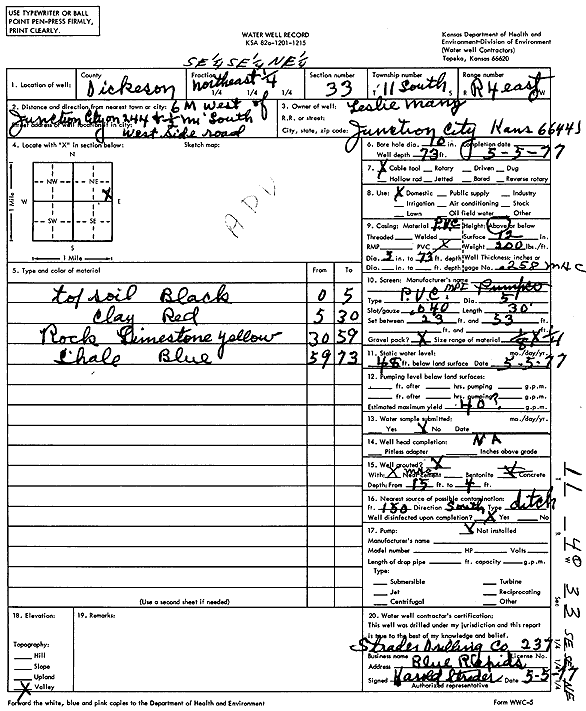 USE TYPEWRITER OR BALL
POINT PEN-PRESS FIRMLY,
PRINT CLEARLY.
WATER WELL RECORD
KSA 82a-1201-1215
Kansas Department of Health and
Environment-Division of Environment
(Water well Contractors)
Topeka, Kansas 66620
SE¼ SE¼ NE¼
1. Location of well: County Dickeson Fraction northeast ¼ 1/4 1/4 1/4 Section number 33 Township number T 11 South Range number R 4 east
2. Distance and direction from nearest town or city: 6 M West of
Junction City on 244 & ½ mi South
West Side road
3. Owner of well: Leslie Many
R.R. or street:
City, state, zip code: Junction City Kans 66441
4. Locate with "X" in section below: Sketch map:
N
NW NE
W E
SW SE
S
1 Mile
1 Mile
ADV
6. Bore hole dia. 10 in. Completion date
Well depth 73 ft. 5-5-77
7. X Cable tool Rotary Driven Dug
Hollow rod Jetted Bored Reverse rotary
8. Use: X Domestic Public supply Industry
Irrigation Air conditioning Stock
Lawn Oil field water Other
9. Casing: Material P.V.C. Height: Above or below
Threaded Welded Surface 12 in.
RMP PVC X Weight 200 lbs./ft.
Dia. 5 in. to 73 ft. depth Wall Thickness: inches or
Dia. in. to ft. depth gage No. .258
5. Type and color of material From To
top soil Black 0 5
Clay Red 5 30
Rock Limestone yellow 30 59
Shale Blue 59 73
10. Screen: Manufacturer's name
Type P.V.C. Dia. 5"
Slot/gauze .040 Length 30'
Set between 23 ft. and 53 ft.
ft. and ft.
Gravel pack? X Size range of material
11. Static water level: mo./day/yr.
48 ft. below land surface Date 5-5-77
12. Pumping level below land surfaces:
ft. after hrs. pumping g.p.m.
ft. after hrs. pumping g.p.m.
Estimated maximum yield 40? g.p.m.
13. Water sample submitted: mo./day/yr.
Yes X No Date
14. Well head completion: NA
Pitless adapter Inches above grade
15. Well grouted? X
With: X Neat cement Bentonite Concrete
Depth: From 15 ft. to 4 ft.
16. Nearest source of possible contamination:
ft. 150 Direction South Type ditch
Well disinfected upon completion? X Yes No
17. Pump: X Not installed
Manufacturer's name
Model number HP Volts
Length of drop pipe ft. capacity g.p.m.
Type:
Submersible Turbine
Jet Reciprocating
Centrifugal Other
(Use a second sheet if needed)
18. Elevation:
Topography:
Hill
Slope
Upland
X Valley
19. Remarks:
20. Water well contractor's certification:
This well was drilled under my jurisdiction and this report
is true to the best of my knowledge and belief.
Strader Drilling Co. 237
Business name License No.
Address Blue Rapids
Signed Harold Strader Date 5-5-77
Authorized representative
Forward the white, blue and pink copies to the Department of Health and Environment
Form WWC-5
33
SE SE NE